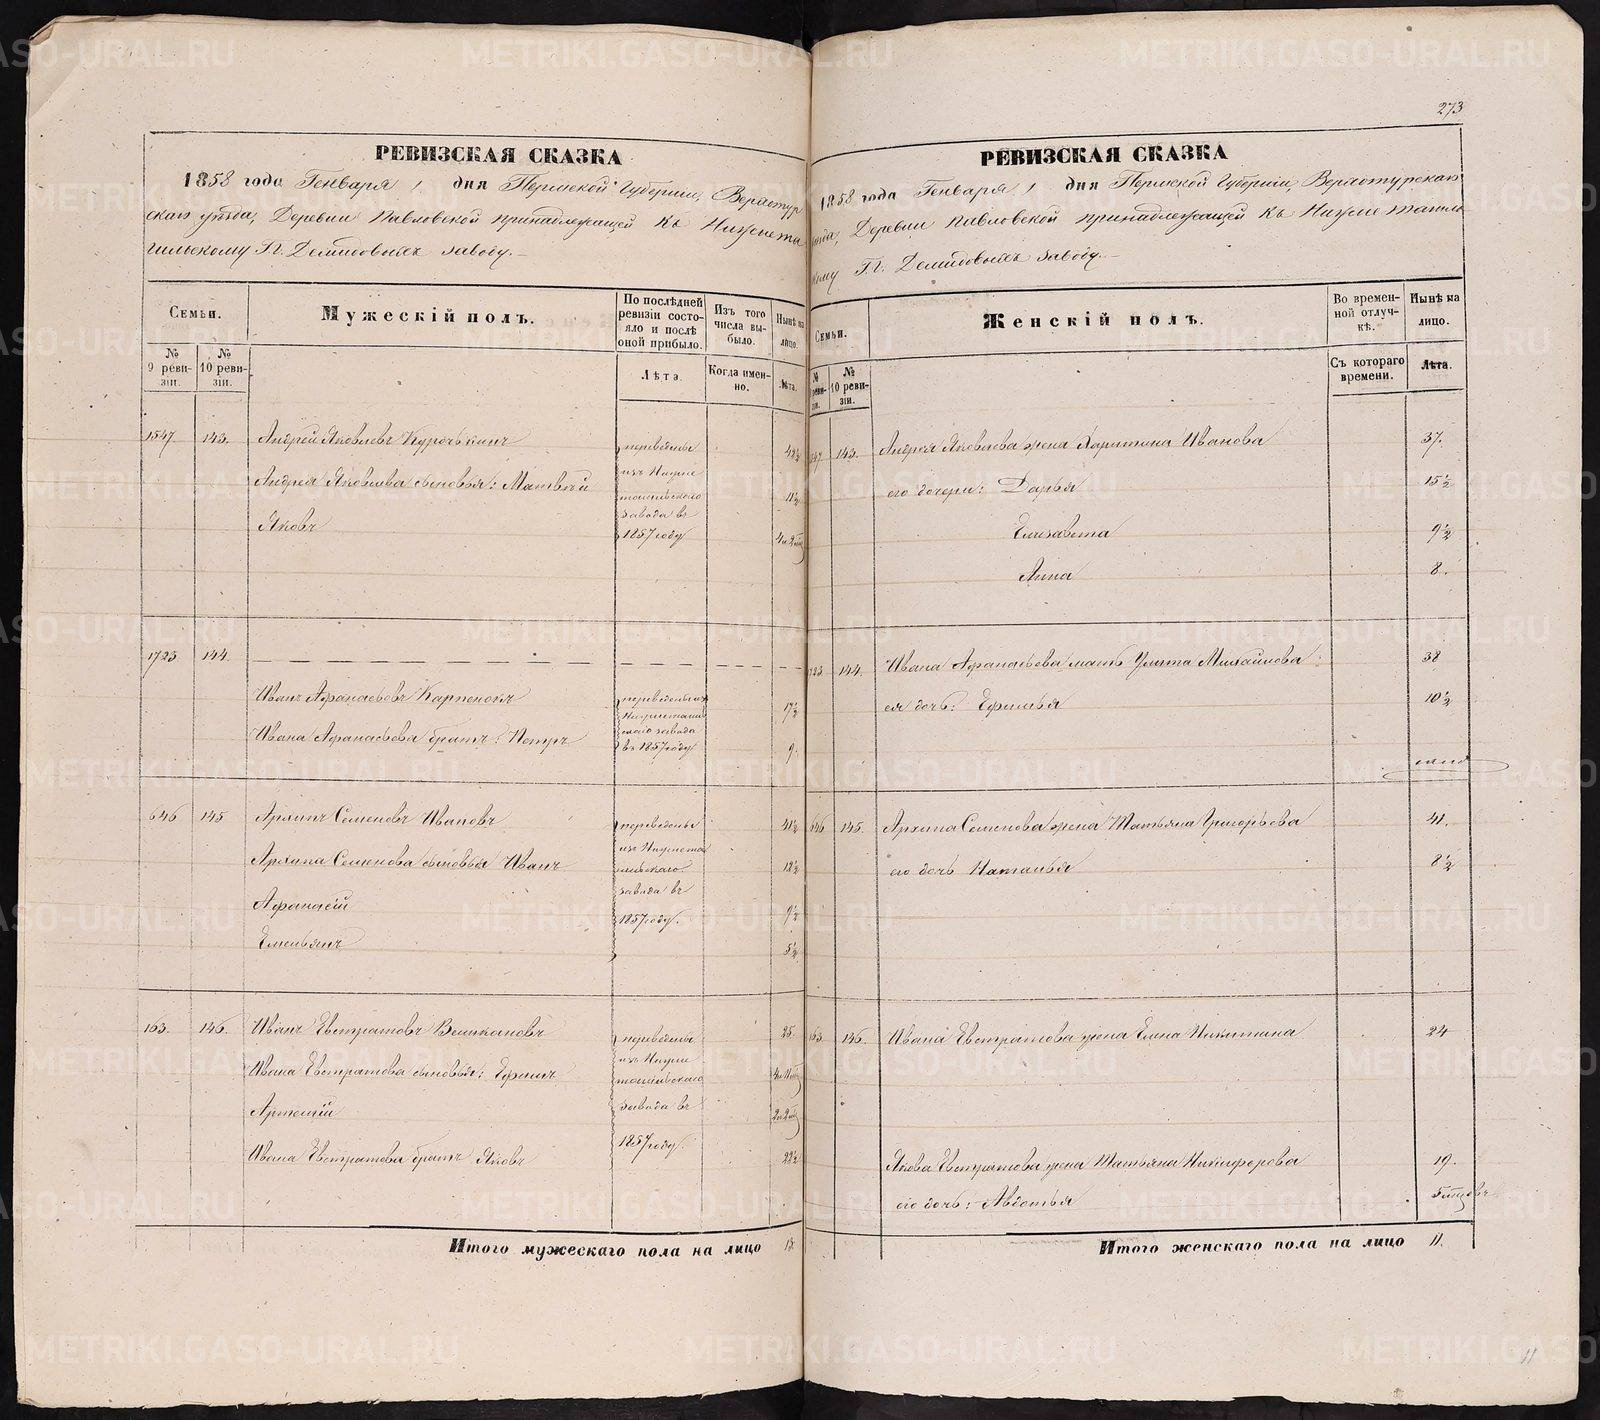 273
РЕВИЗСКАЯ СКАЗКА
1858 года Генваря 1 дня Пермской Губерніи, Верхотур
скаго уѣзда, Деревни Павловской принадлежащей къ Нижнета
гильскому Гг. Демидовыхъ заводу.
Семьи.
Мужескій полъ.
По послѣдней ревизіи состояло и послѣ оной прибыло.
Изъ того числа выбыло.
Нынѣ на лицо.
№ 9 ревизіи.
№ 10 ревизіи.
Лѣта.
Когда именно.
Лѣта.
1547 143. Андрей Яковлевъ Курочкинъ переведены 42½
Андрея Яковлева сыновья: Матвѣй изъ Нижне 11½
тагильскаго
завода въ
Яковъ 1857 году 4 и 2 мѣс
1723. 144.
Иванъ Афанасьевъ переведены изъ 17½
Нижнетагиль
скаго завода
Ивана Афанасьева братъ: Петръ въ 1857 году 9.
646 145 Архипъ Семеновъ Ивановъ переведены 41½
изъ Нижнета
Архипа Семенова сыновья Иванъ гильскаго 12½
завода въ
Афанасій 1857 году. 9½
Емельянъ 5½
163. 146. Иванъ Евстратовъ Великановъ переведены 25.
изъ Нижне
Ивана Евстратова сыновья: Ефимъ тагильскаго 4 и 11 мѣс
Артемій завода въ 2 и 2 мѣс
1857 году.
Ивана Евстратова братъ Яковъ 22½
Итого мужескаго пола на лицо 12.
РЕВИЗСКАЯ СКАЗКА
1858 года Генваря 1 дня Пермской Губерніи, Верхотурскаго
уѣзда, Деревни Павловской принадлежащей къ Нижнетагильс
кому Гг. Демидовыхъ заводу.
Семьи.
Женскій полъ.
Во временной отлучкѣ.
Нынѣ на лицо.
№ реви- зіи.
№ 10 ревизіи.
Съ котораго времени.
Лѣта.
547 143. Андрея Яковлева жена Харитина Иванова 37.
его дочери: Дарья 15½
Елисавета 9½
Анна 8.
723 144. Ивана Афанасьева мать Улита Михайлова 38
ея дочь: Ефимья 10½
646 145. Архипа Семенова жена Татьяна Григорьева 41.
его дочь Наталья 8½
163. 146. Ивана Евстратова жена Елена Никитина 24
Якова Евстратова жена Татьяна Никифорова 19.
его дочь: Авдотья 5 мѣсцовъ
Итого женскаго пола на лицо 11.
11
METRIKI.GASO-URAL.RU